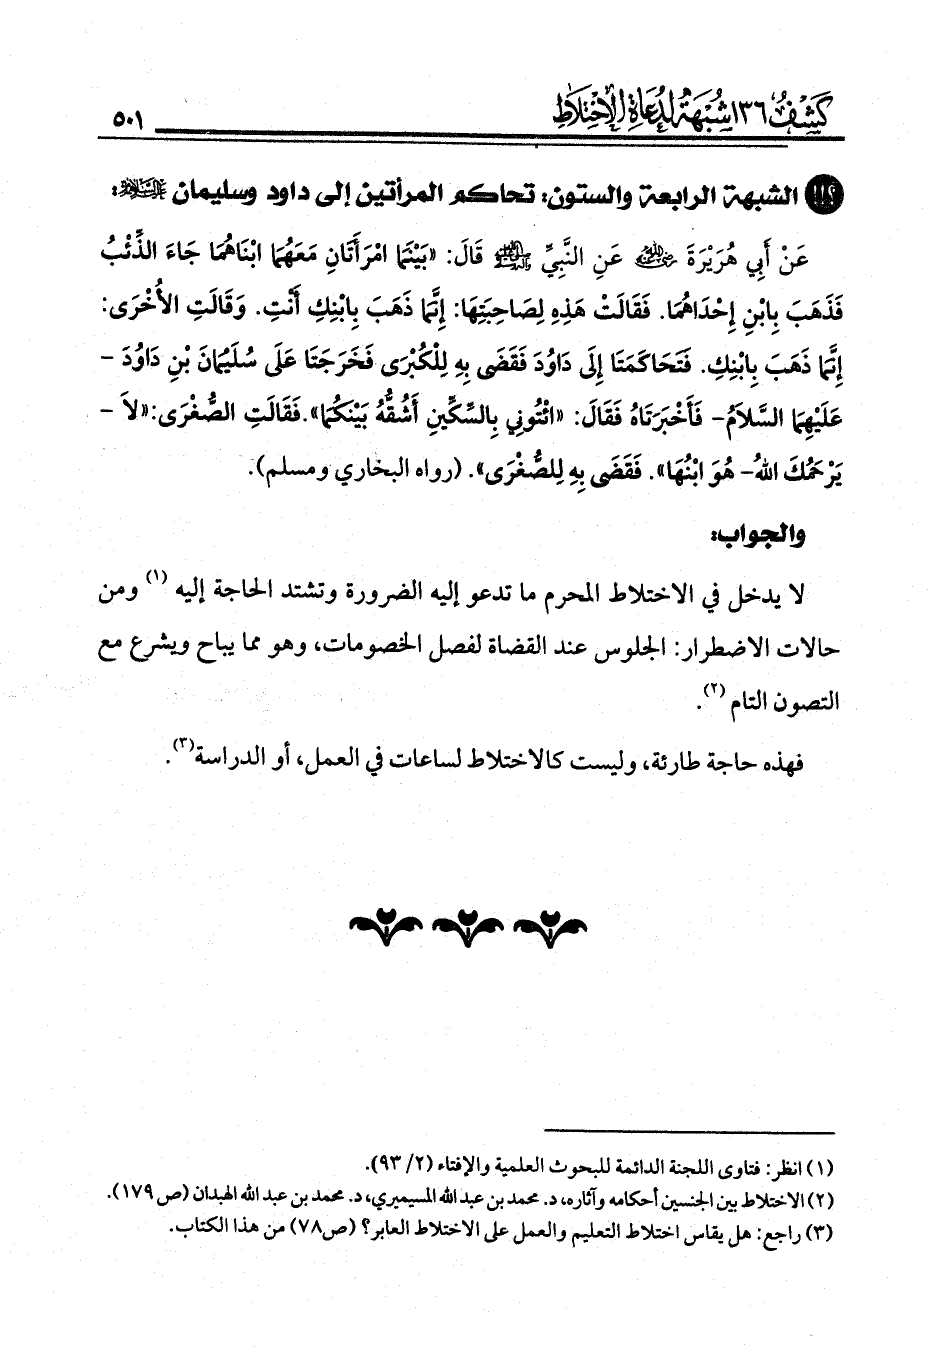 كشف ١٣٦ شبهة لدعاة الاختلاط
٥٠١
الشبهة الرابعة والستون: تحاكم المرأتين إلى داود وسليمان عليهما السلام:
عَنْ أَبِي هُرَيْرَةَ رضي الله عنه عَنِ النَّبِيِّ صلى الله عليه وسلم قَالَ: «بَيْنَمَا امْرَأَتَانِ مَعَهُمَا ابْنَاهُمَا جَاءَ الذِّئْبُ
فَذَهَبَ بِابْنِ إِحْدَاهُمَا. فَقَالَتْ هَذِهِ لِصَاحِبَتِهَا: إِنَّمَا ذَهَبَ بِابْنِكِ أَنْتِ. وَقَالَتِ الأُخْرَى:
إِنَّمَا ذَهَبَ بِابْنِكِ. فَتَحَاكَمَتَا إِلَى دَاوُدَ فَقَضَى بِهِ لِلْكُبْرَى فَخَرَجَتَا عَلَى سُلَيْمَانَ بْنِ دَاوُدَ -
عَلَيْهِمَا السَّلاَمُ- فَأَخْبَرَتَاهُ فَقَالَ: «ائْتُونِي بِالسِّكِّينِ أَشُقُّهُ بَيْنَكُمَا».فَقَالَتِ الصُّغْرَى:«لاَ -
يَرْحَمُكَ اللهُ- هُوَ ابْنُهَا». فَقَضَى بِهِ لِلصُّغْرَى». (رواه البخاري ومسلم).
والجواب:
لا يدخل في الاختلاط المحرم ما تدعو إليه الضرورة وتشتد الحاجة إليه (١) ومن
حالات الاضطرار: الجلوس عند القضاة لفصل الخصومات، وهو مما يباح ويشرع مع
التصون التام (٢).
فهذه حاجة طارئة، وليست كالاختلاط لساعات في العمل، أو الدراسة(٣).
(١) انظر: فتاوى اللجنة الدائمة للبحوث العلمية والإفتاء (٢/ ٩٣).
(٢) الاختلاط بين الجنسين أحكامه وآثاره، د. محمد بن عبد الله المسيميري، د. محمد بن عبد الله الهبدان (ص ١٧٩).
(٣) راجع: هل يقاس اختلاط التعليم والعمل على الاختلاط العابر؟ (ص٧٨) من هذا الكتاب.